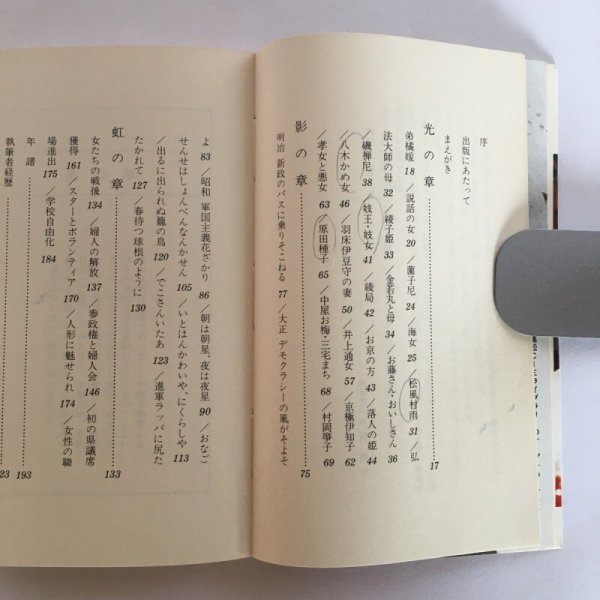 序
出版にあたって
まえがき
光の章……17
弟橘媛 18 /説話の女 20 /薫子尼 24 /海女 25 /松風村雨 31 /弘
法大師の母 32 /綾子姫 33 /金若丸と母 34 /お藤さん・おいしさん 36
/磯禅尼 38 /妓王・妓女 41 /綾局 42 /お京の方 43 /落人の姫 44
/八木かめ女 46 /羽床伊豆守の妻 50 /井上通女 57 /京極伊知子 62
/孝女と悪女 63 /原田穂子 65 /中屋お梅、三宅まち 68 /村岡箏子 69
影の章……75
明治 新政のバスに乗りそこねる 77 /大正 デモクラシーの風がそよそ
よ 83 /昭和 軍国主義花ざかり 86 /朝は朝星、夜は夜星 90 /おなご
せんせはしょんべんなんかせん 105 /いとはんかわいや、にくらしや 113
/出るに出られぬ籠の鳥 120 /でこさんいたあ 123 /進軍ラッパに尻た
たかれて 127 /春待つ球根のように 130
虹の章……133
女たちの戦後 134 /婦人の解放 137 /参政権と婦人会 146 /初の県議席
獲得 161 /スターとボランティア 170 /人形に魅せられ 174 /女性の職
場進出 175 /学校自由化 184
年譜……193
執筆者経歴……23